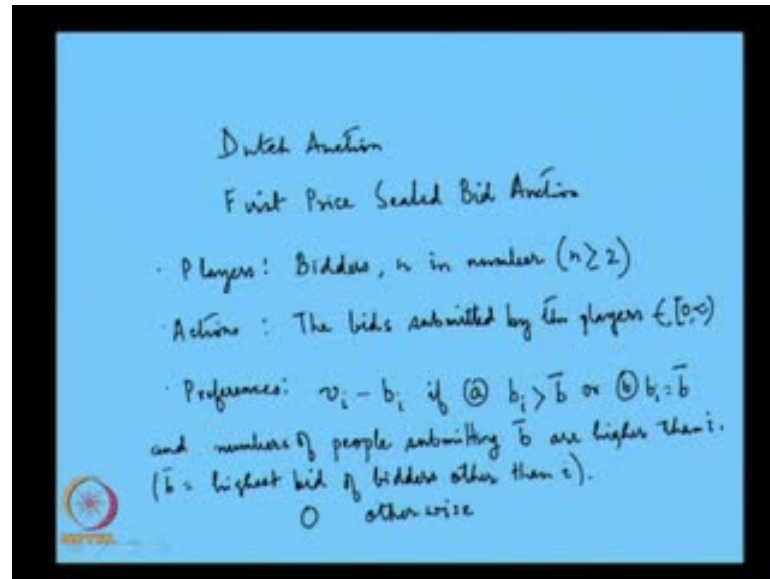 Dutch Auction
First Price Sealed Bid Auction
· Players: Bidders, n in number (n ≥ 2)
· Actions: The bids submitted by the players ∈ [0,∝)
· Preferences: v_i - b_i if ⓐ b_i > b̄ or ⓑ b_i = b̄
and numbers of people submitting b̄ are higher than i.
(b̄ = highest bid of bidders other than i).
0 otherwise
NPTEL